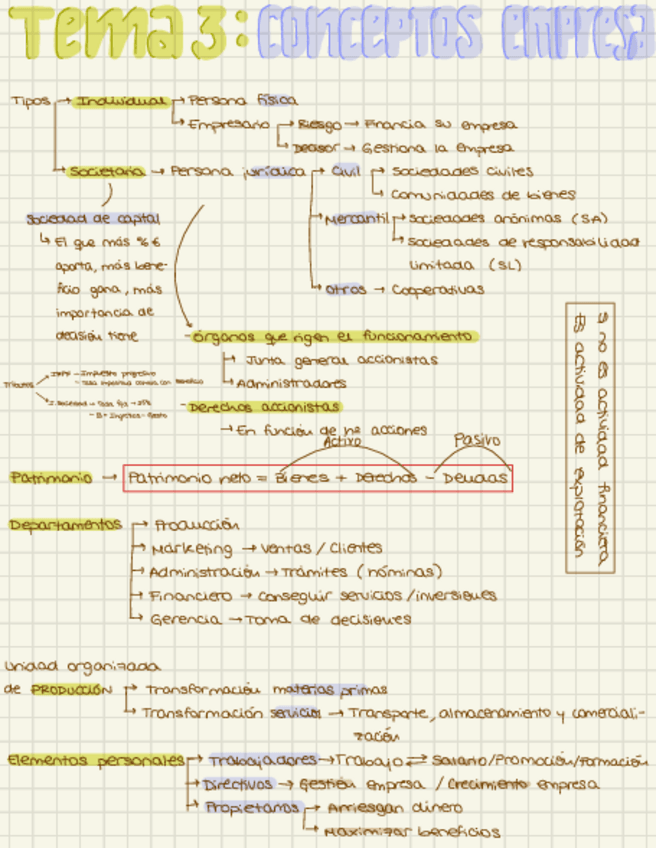 Tema 3: conceptos empresa
Tipos → Individual → Persona física
→ Empresario → Riesgo → Financia su empresa
→ Decisor → Gestiona la empresa
→ Societaria → Persona jurídica → Civil → Sociedades civiles
→ Comunidades de bienes
Sociedad de capital → Mercantil → Sociedades anónimas (SA)
↳ El que más % € → Sociedades de responsabilidad
aporta, más bene- limitada (SL)
ficio gana, más → Otros → Cooperativas
importancia de
decisión tiene
- Órganos que rigen el funcionamiento
→ Junta general accionistas
→ Administradores
Tributos → IRPF - Impuesto progresivo
→ I. Sociedad → Tasa fija → 25%
- B = Ingresos - Gasto
- Derechos accionistas
→ En función de nº acciones
Activo Pasivo
Patrimonio → Patrimonio neto = Bienes + Derechos - Deudas
Si no es actividad financiera
es actividad de explotación
Departamentos → Producción
→ Marketing → Ventas / Clientes
→ Administración → Trámites (nóminas)
→ Financiero → Conseguir servicios / inversiones
→ Gerencia → Toma de decisiones
Unidad organizada
de PRODUCCIÓN → Transformación materias primas
→ Transformación servicios → Transporte, almacenamiento y comerciali-
zación
Elementos personales → Trabajadores → Trabajo ⇄ Salario/Promoción/Formación
→ Directivos → Gestión empresa / Crecimiento empresa
→ Propietarios → Arriesgan dinero
→ Maximizar beneficios